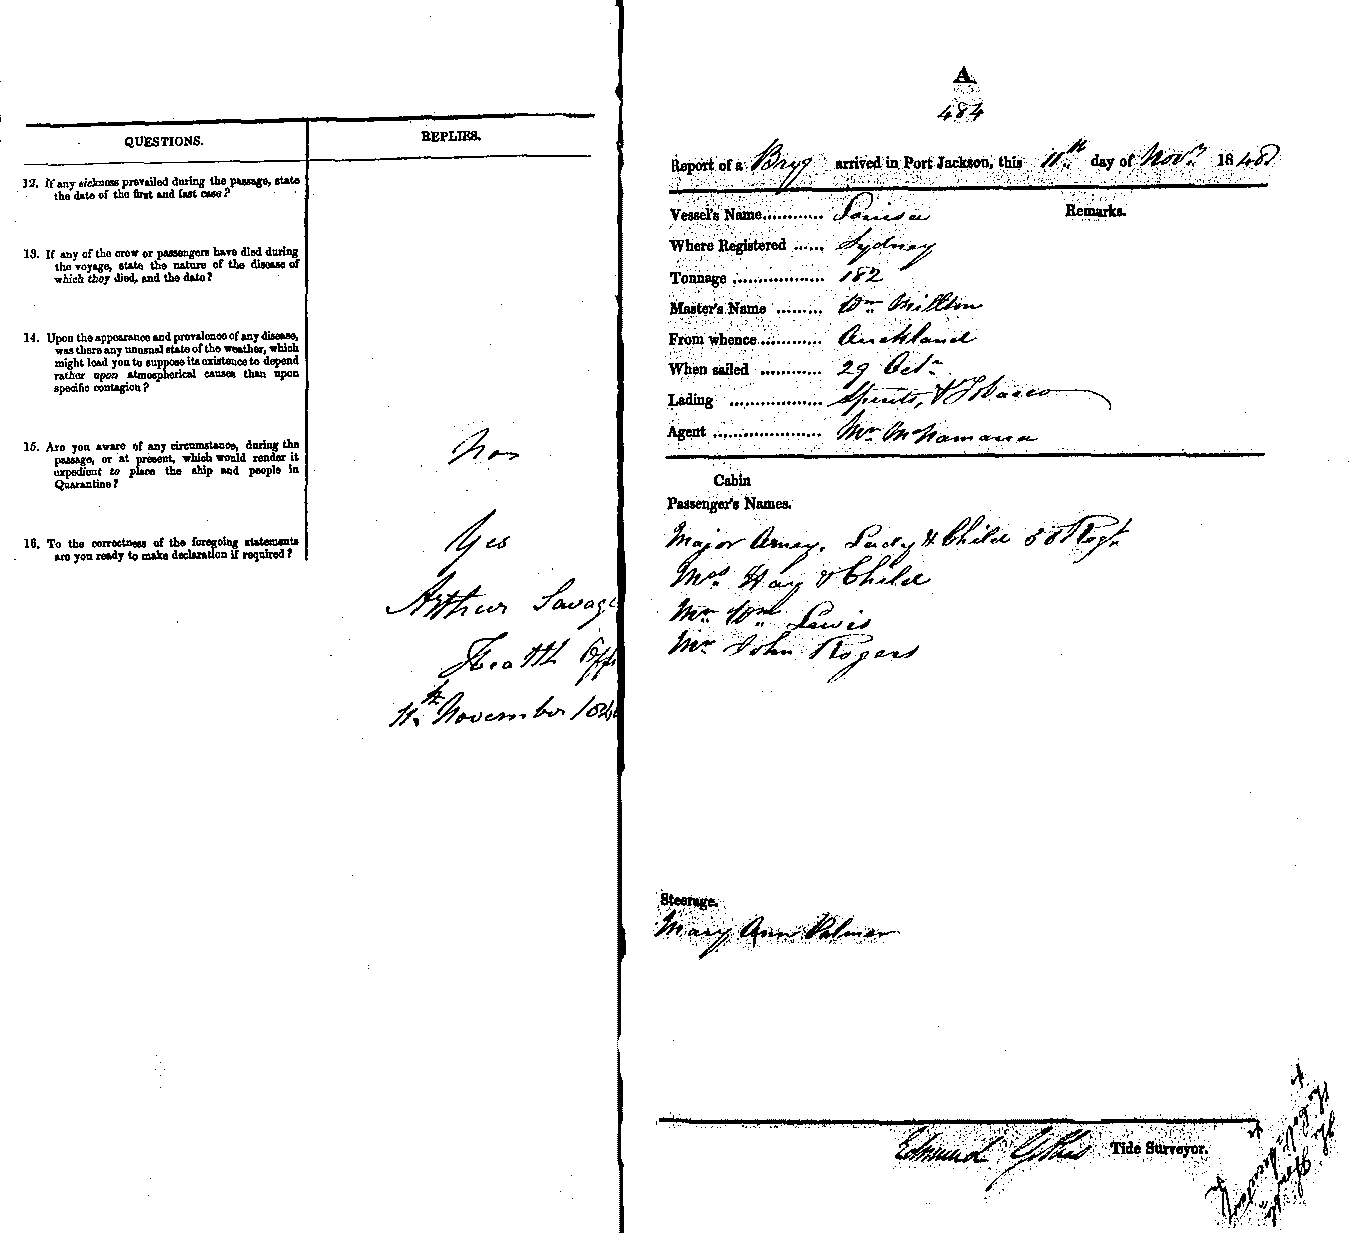 QUESTIONS.
REPLIES.
12. If any sickness prevailed during the passage, state
the date of the first and last case?
13. If any of the crew or passengers have died during
the voyage, state the nature of the disease of
which they died, and the date?
14. Upon the appearance and prevalence of any disease,
was there any unusual state of the weather, which
might lead you to suppose its existence to depend
rather upon atmospherical causes than upon
specific contagion?
15. Are you aware of any circumstance, during the
passage, or at present, which would render it
expedient to place the ship and people in
Quarantine?
16. To the correctness of the foregoing statements
are you ready to make declaration if required?
Yes
Arthur Savage
Health Off
11th November 184
A
484
Report of a Bryg arrived in Port Jackson, this 11th day of Novr. 1848
Vessel's Name............ Louisa
Where Registered ...... Sydney
Tonnage .................. 182
Master's Name ......... Wm Millton
From whence............ Auckland
When sailed ............ 29 Octr
Lading .................. Spirits, & Tobacco
Agent ..................... Mr McNamara
Remarks.
Cabin
Passenger's Names.
Major Arney, Lady & Child 58 Regt
Mrs Hay & Child
Mr Wm Lewis
Mr John Rogers
Steerage.
Mary Ann Palmer
Edmund
Tide Surveyor.